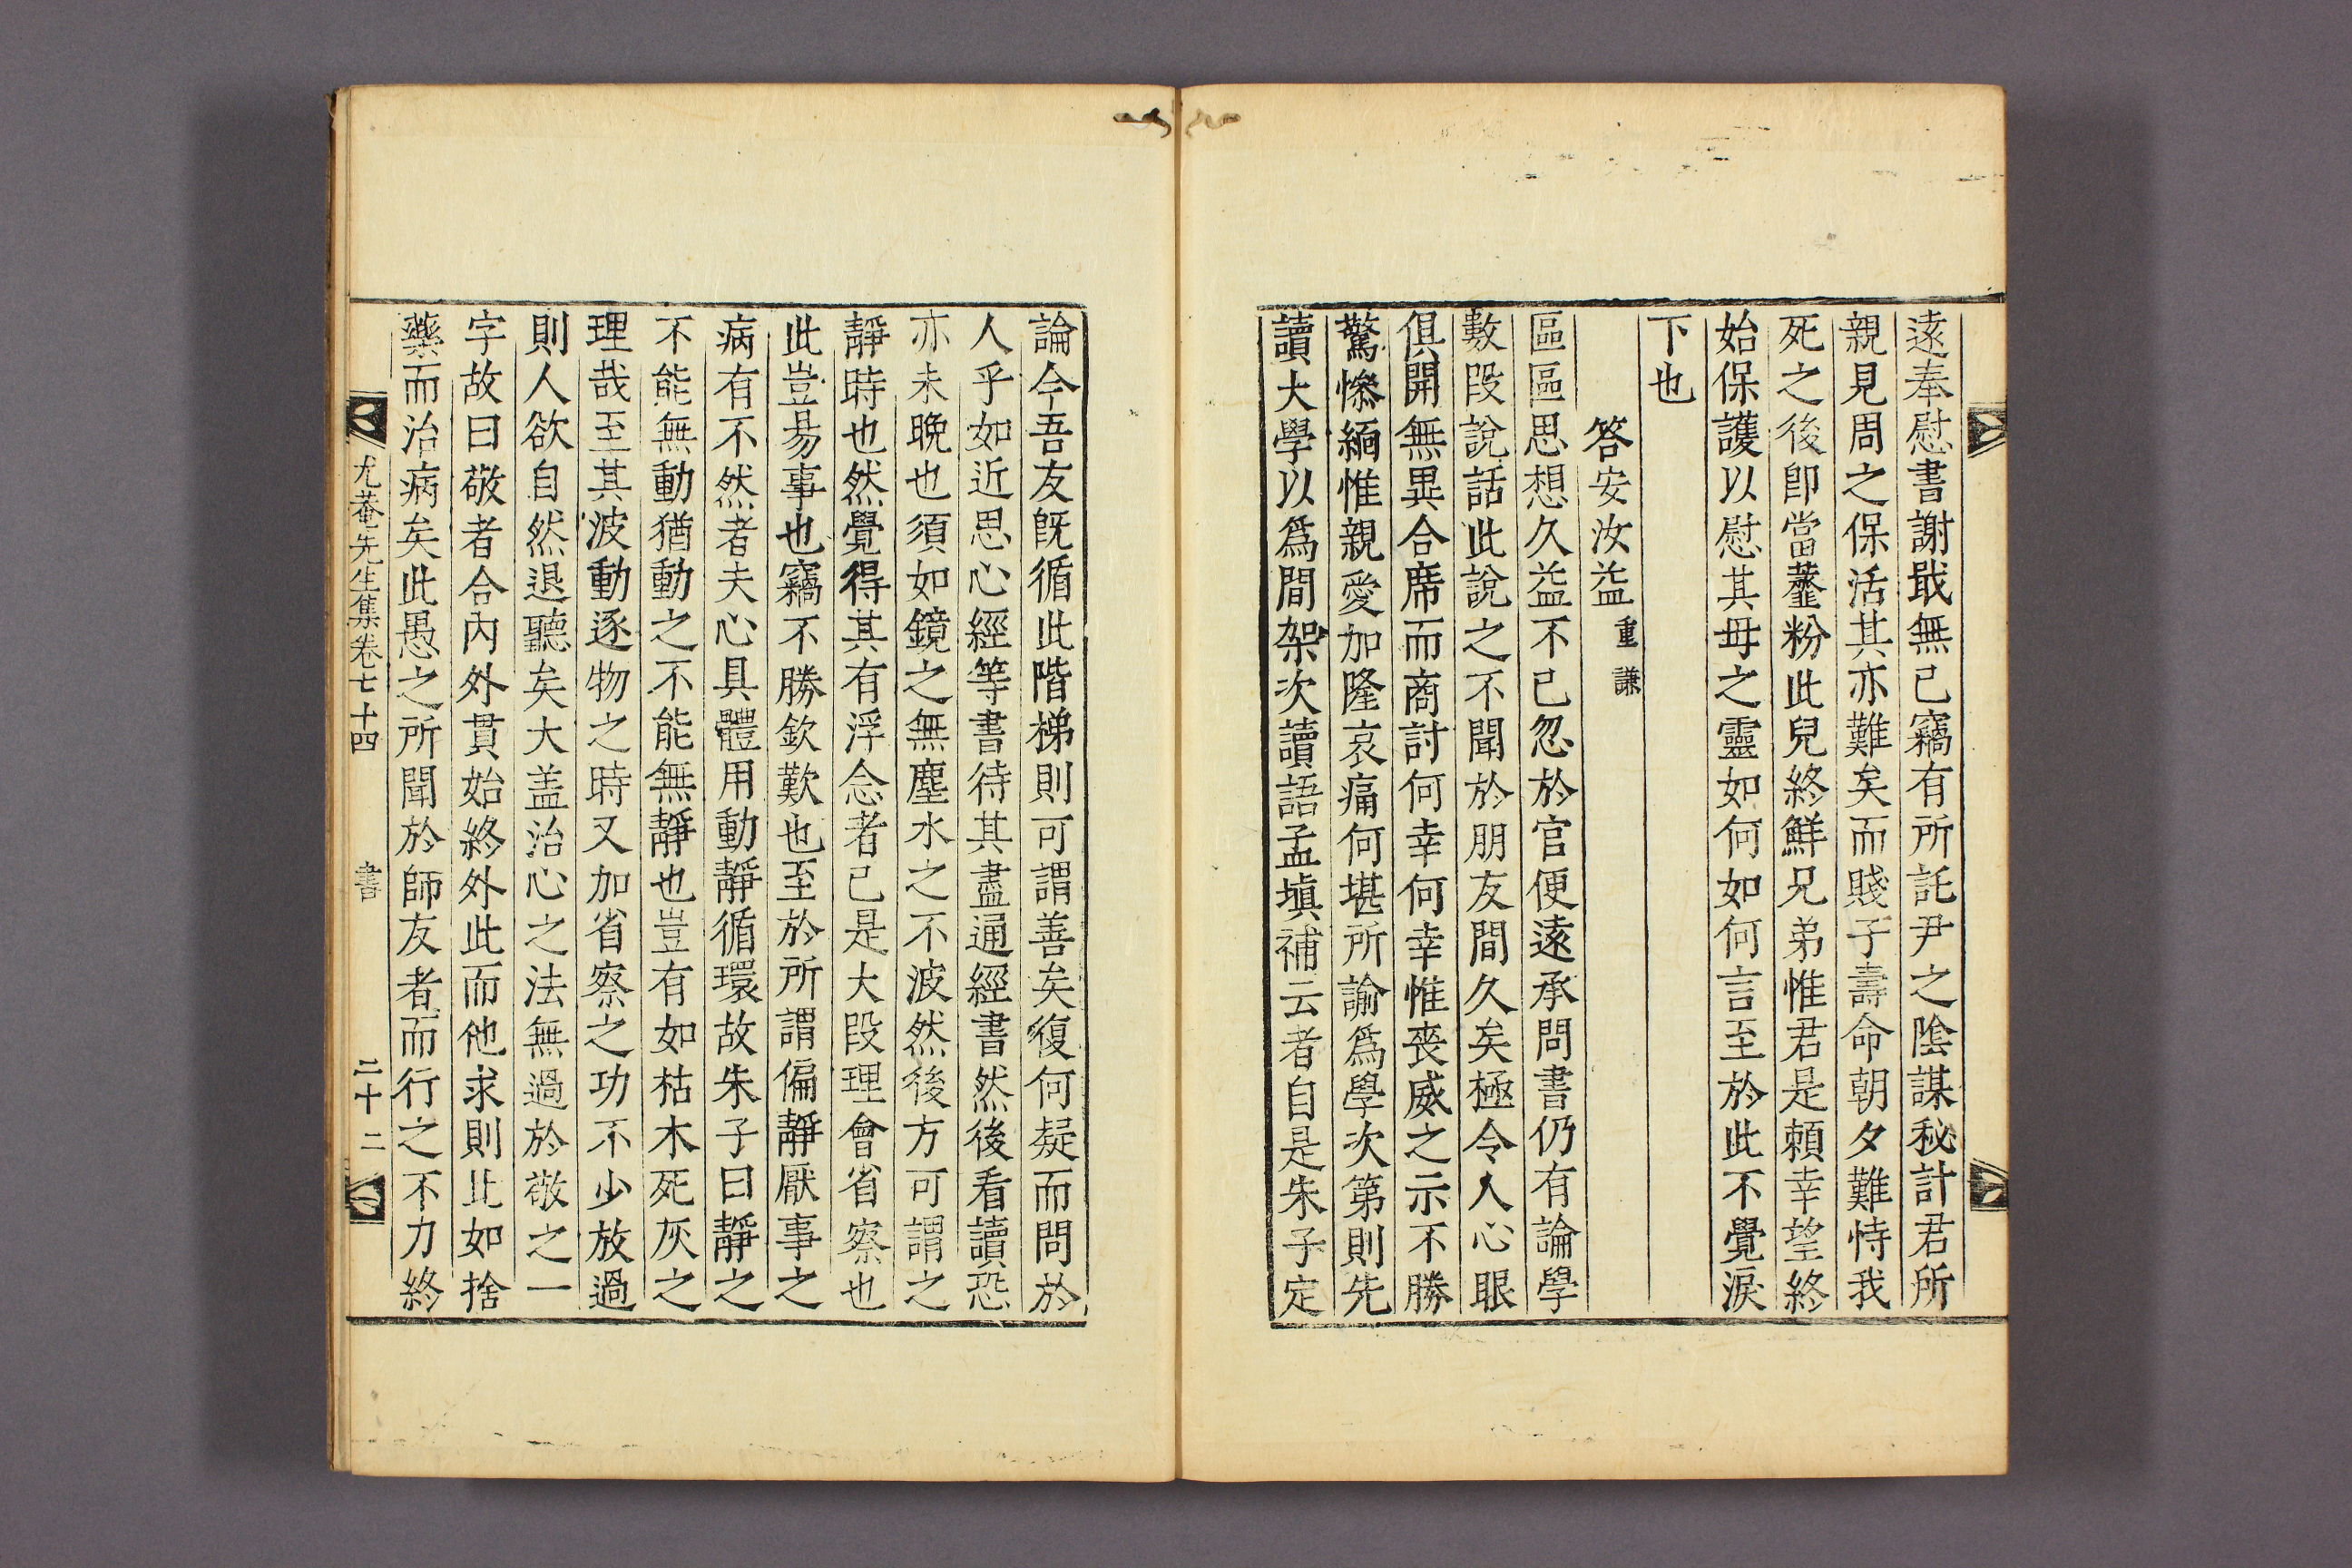 遠奉慰書謝戢無已竊有所託尹之陰謀秘計君所
親見周之保活其亦難矣而賤子壽命朝夕難恃我
死之後卽當虀粉此兒終鮮兄弟惟君是賴幸望終
始保護以慰其母之靈如何如何言至於此不覺淚
下也
答安汝益重謙
區區思想久益不已忽於官便遠承問書仍有論學
數段說話此說之不聞於朋友間久矣極令人心眼
俱開無異合席而商討何幸何幸惟喪威之示不勝
驚慘緬惟親愛加隆哀痛何堪所諭爲學次第則先
讀大學以爲間架次讀語孟塡補云者自是朱子定
論今吾友旣循此階梯則可謂善矣復何疑而問於
人乎如近思心經等書待其盡通經書然後看讀恐
亦未晩也須如鏡之無塵水之不波然後方可謂之
靜時也然覺得其有浮念者已是大段理會省察也
此豈易事也竊不勝欽歎也至於所謂偏靜厭事之
病有不然者夫心具體用動靜循環故朱子曰靜之
不能無動猶動之不能無靜也豈有如枯木死灰之
理哉至其波動逐物之時又加省察之功不少放過
則人欲自然退聽矣大盖治心之法無過於敬之一
字故曰敬者合內外貫始終外此而他求則此如捨
藥而治病矣此愚之所聞於師友者而行之不力終
尤菴先生集卷七十四 書 二十二